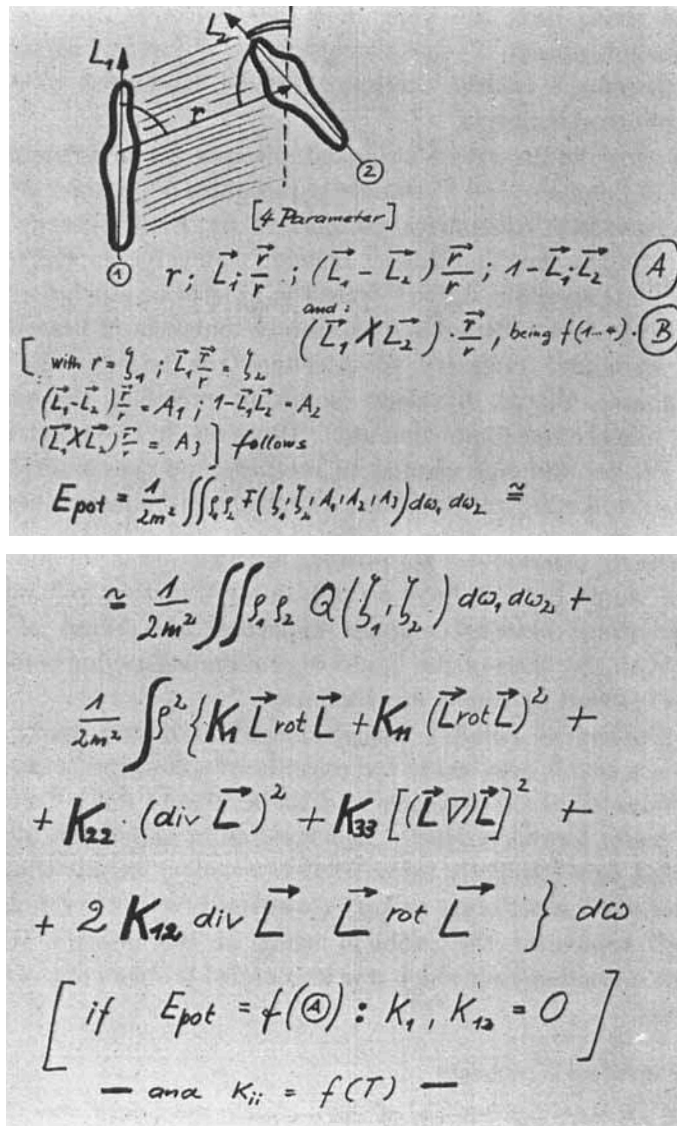 L⃗₁ L⃗₂
r
②
[4 Parameter]
①
r; L⃗₁ r⃗/r; (L⃗₁ - L⃗₂) r⃗/r; 1 - L⃗₁·L⃗₂ Ⓐ
and:
(L⃗₁ X L⃗₂) · r⃗/r, being f(1...4). Ⓑ
[with r = ζ₁; L⃗₁ r⃗/r = ζ₂
(L⃗₁-L⃗₂) r⃗/r = A₁; 1-L⃗₁L⃗₂ = A₂
(L⃗₁XL⃗₂) r⃗/r = A₃] follows
E_pot = 1/2m² ∬ ρ₁ρ₂ F(ζ₁,ζ₂,A₁,A₂,A₃) dω₁ dω₂ ≅
≅ 1/2m² ∬ ρ₁ρ₂ Q(ζ₁,ζ₂) dω₁ dω₂ +
1/2m² ∫ρ² {K₁ L⃗ rot L⃗ + K₁₁ (L⃗ rot L⃗)² +
+ K₂₂ · (div L⃗)² + K₃₃ [(L⃗ ∇) L⃗]² +
+ 2 K₁₂ div L⃗ L⃗ rot L⃗ } dω
[if E_pot = f(Ⓐ): K₁, K₁₂ = 0]
— and K_ii = f(T) —